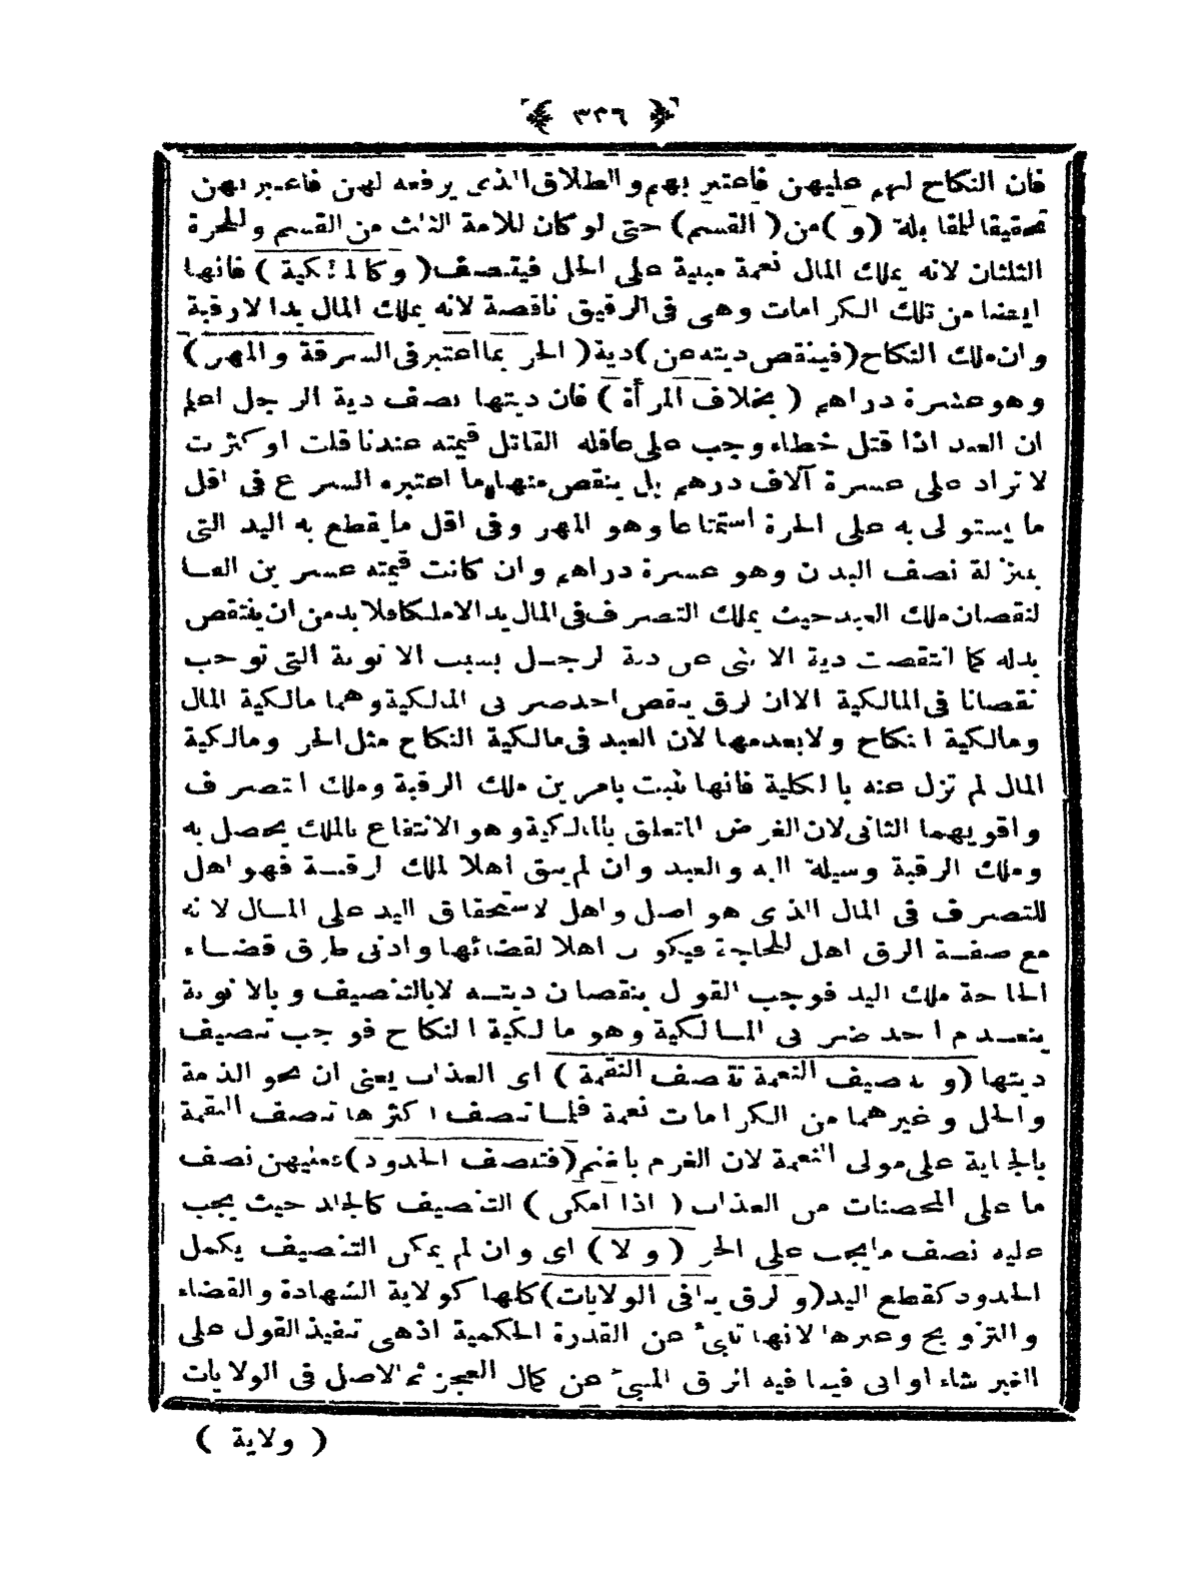 ﴿ ٣٢٦ ﴾
فان النكاح لهم عليهن فاعتبر بهم والطلاق الذى يرفعه لهن فاعتبر بهن
تحقيقا للمقابلة (و) من (القسم) حتى لو كان للامة الثلث من القسم وللحرة
الثلثان لانه بملك المال نعمة مبنية على الحل فيتنصف (وكالمالكية) فانها
ايضا من تلك الكرامات وهى فى الرقيق ناقصة لانه يملك المال يدا لا رقبة
وان ملك النكاح (فينقص ديته عن) دية (الحر بما اعتبر فى السرقة والمهر)
وهو عشرة دراهم (بخلاف المرأة) فان ديتها نصف دية الرجل اعلم
ان العبد اذا قتل خطاء وجب على عاقله القاتل قيمته عندنا قلت او كثرت
لا تزاد على عشرة آلاف درهم بل ينقص منها ما اعتبره الشرع فى اقل
ما يستولى به على الحرة استمتاعا وهو المهر وفى اقل ما يقطع به اليد التى
بمنزلة نصف البدن وهو عشرة دراهم وان كانت قيمته عشرين الفا
لنقصان ملك العبد حيث يملك التصرف فى المال يدا لا ملكا فلا بد من ان ينتقص
بدله كما انتقصت دية الانثى عن دية الرجل بسبب الانوثة التى توجب
نقصانا فى المالكية الا ان الرق ينقص احد ضربى المالكية وهما مالكية المال
ومالكية النكاح ولا يعدمها لان العبد فى مالكية النكاح مثل الحر ومالكية
المال لم تزل عنه بالكلية فانها تثبت بامرين ملك الرقبة وملك التصرف
واقويهما الثانى لان الغرض المتعلق بالمالكية وهو الانتفاع بالملك يحصل به
وملك الرقبة وسيلة اليه والعبد وان لم يبق اهلا لملك الرقبة فهو اهل
للتصرف فى المال الذى هو اصل واهل لاستحقاق اليد على المال لانه
مع صفة الرق اهل للحاجة فيكون اهلا لقضائها وادنى طرق قضاء
الحاجة ملك اليد فوجب القول بنقصان ديته لا بالتنصيف وبالانوثة
ينعدم احد ضربى المالكية وهو مالكية النكاح فوجب تنصيف
ديتها (وتنصيف النعمة تنصف النقمة) اى العذاب يعنى ان نحو الذمة
والحل وغيرهما من الكرامات نعمة فلما تنصف اكثرها تنصف النقمة
بالجناية على مولى النعمة لان الغرم بالغنم (فتنصف الحدود) فعليهن نصف
ما على المحصنات من العذاب (اذا امكن) التنصيف كالجلد حيث يجب
عليه نصف ما يجب على الحر (ولا) اى وان لم يمكن التنصيف يكمل
الحدود كقطع اليد (والرق ينافى الولايات) كلها كولاية الشهادة والقضاء
والتزويج وغيرها لانها تنبئ عن القدرة الحكمية اذ هى تنفيذ القول على
الغير شاء او ابى فيما فيه الرق المنبئ عن كمال العجز ثم الاصل فى الولايات
( ولاية )